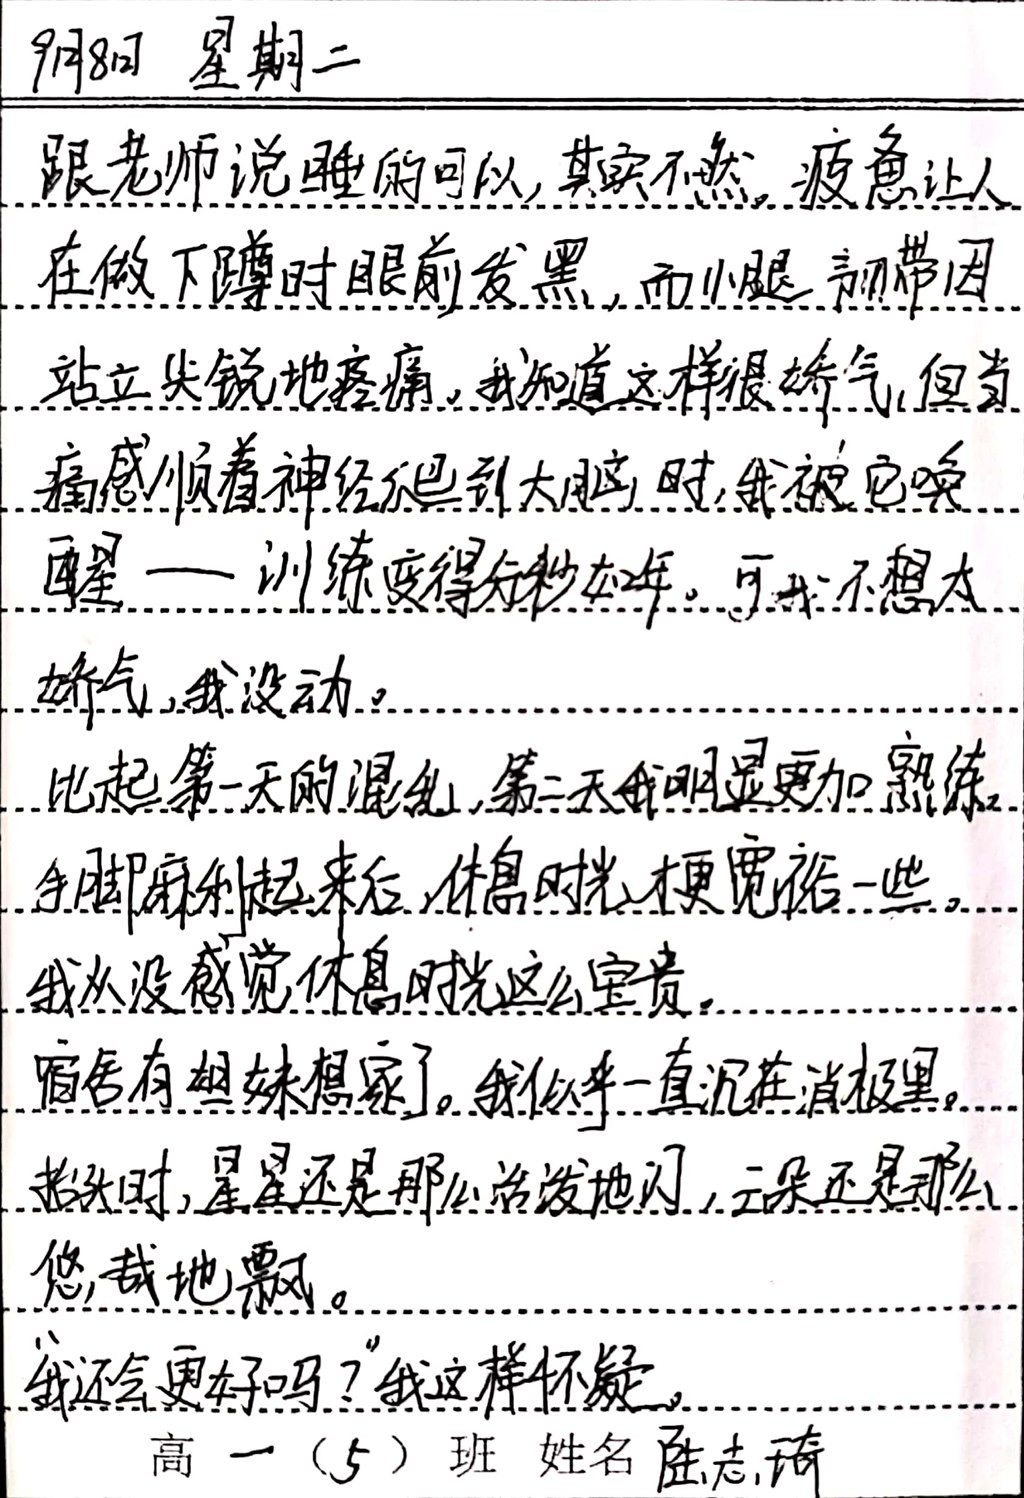 9月8日 星期二
跟老师说睡的可以,其实不然。疲惫让人
在做下蹲时眼前发黑,而小腿韧带因
站立尖锐地疼痛。我知道这样很娇气,但当
痛感顺着神经爬到大脑时,我被它唤
醒——训练变得分秒如年。可我不想太
娇气,我没动。
比起第一天的混乱,第二天我明显更加熟练。
手脚麻利起来后,休息时光才更宽裕一些。
我从没感觉休息时光这么宝贵。
宿舍有姐妹想家了。我似乎一直沉在消极里。
抬头时,星星还是那么活泼地闪,云朵还是那么
悠哉地飘。
“我还会更好吗?”我这样怀疑。
高一(5)班 姓名 陈志琦